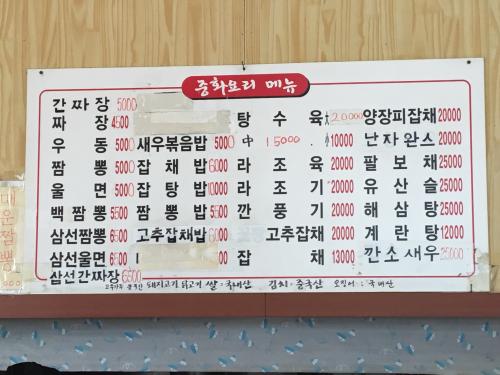 중화요리 메뉴
간짜장 5000
짜장 4500 탕수육 大 20000 양장피잡채 20000
우동 5000 새우볶음밥 5000 中 15000 小 10000 난자완스 20000
짬뽕 5000 잡채밥 6000 라조육 20000 팔보채 25000
울면 5000 잡탕밥 10000 라조기 20000 유산슬 25000
백짬뽕 5500 짬뽕밥 5500 깐풍기 20000 해삼탕 25000
삼선짬뽕 6500 고추잡채밥 6000 고추잡채 20000 계란탕 12000
삼선울면 6500 잡채 13000 깐소새우 25000
삼선간짜장 6500
돼지고기 닭고기 쌀:국내산 김치:중국산 오징어:국내산
매운짬뽕